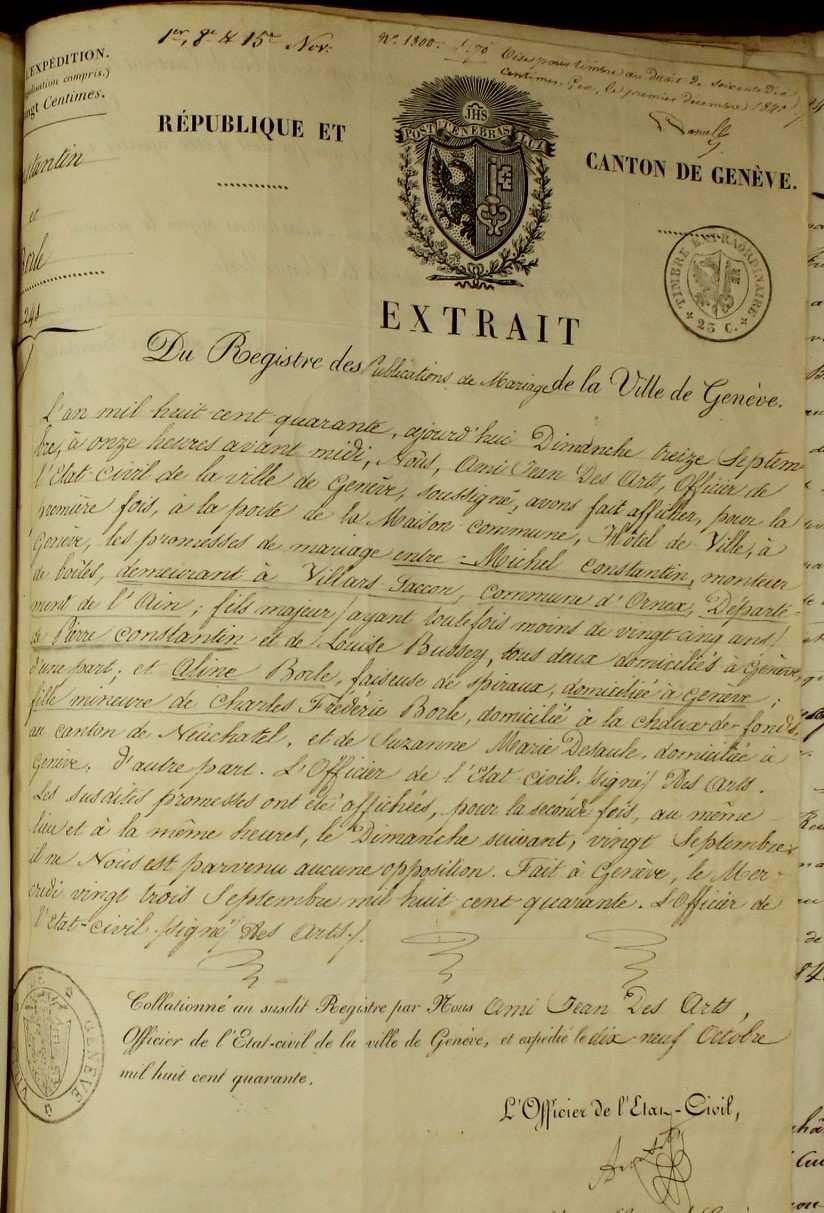 1er, 8e & 15e Nov.
No. 1300.
Visé pour timbre au Droit de soixante Dix
Centimes, Gex, le premier décembre 1840
L'EXPÉDITION.
compris.)
Vingt Centimes.
RÉPUBLIQUE ET
JHS
POST TENEBRAS LUX
CANTON DE GENÈVE.
TIMBRE EXTRAORDINAIRE
25 C.
Constantin
et
Borle
EXTRAIT
Du Registre des Publications de Mariage de la Ville de Genève.
L'an mil huit cent quarante, aujourd'hui Dimanche treize Septem-
bre, à onze heures avant midi, Nous, Ami Jean Des Arts, Officier de
l'Etat-Civil de la ville de Genève, soussigné, avons fait afficher, pour la
première fois, à la porte de la Maison commune, Hôtel de Ville, à
Genève, les promesses de mariage entre Michel Constantin, monteur
de boîtes, demeurant à Villars Taccon, commune d'Ornex, Départe-
ment de l'Ain; fils majeur (ayant toutefois moins de vingt cinq ans)
de Pierre Constantin et de Louise Bussey, tous deux domiciliés à Genève,
d'une part; et Aline Borle, faiseuse de spiraux, domiciliée à Genève;
fille mineure de Charles Frédéric Borle, domicilié à la chaux-de-fonds,
au canton de Neuchatel, et de Suzanne Marie Desaule, domiciliée à
Genève, d'autre part. L'Officier de l'Etat civil. (signé) Des Arts.
Les susdites promesses ont été affichées, pour la seconde fois, au même
lieu et à la même heure, le Dimanche suivant, vingt Septembre;
il ne Nous est parvenu aucune opposition. Fait à Genève, le Mer-
credi vingt trois Septembre mil huit cent quarante. L'Officier de
l'Etat-civil. (signé) Des Arts.
Collationné au susdit Registre par Nous Ami Jean Des Arts,
Officier de l'Etat-civil de la ville de Genève, et expédié le dix neuf Octobre
mil huit cent quarante.
GENÈVE
L'Officier de l'Etat-Civil,